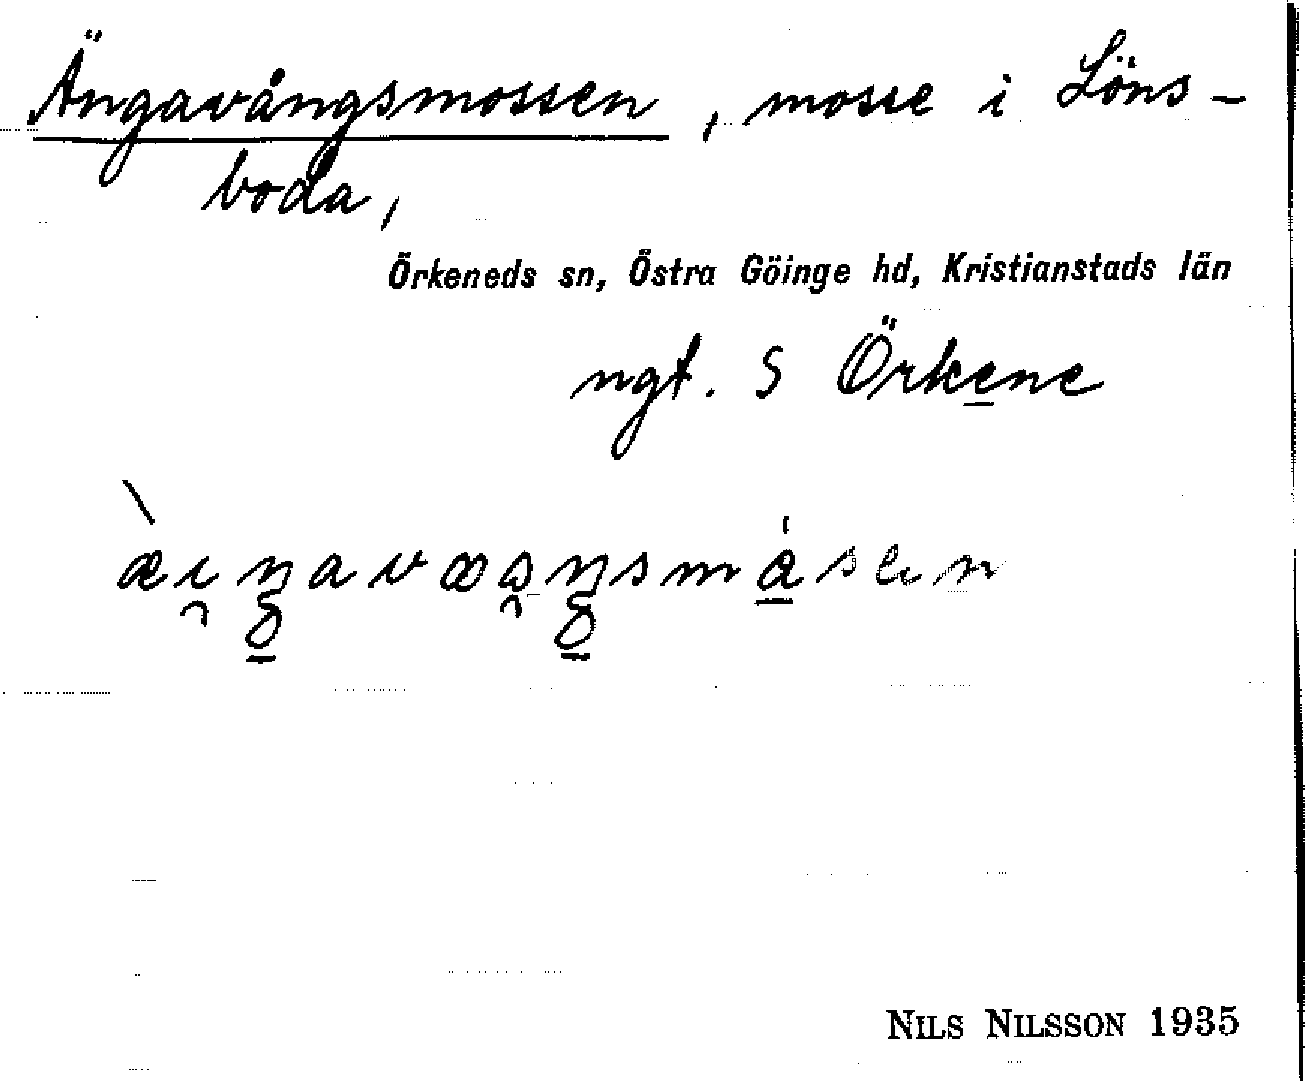 Ängavångsmossen, mosse i Löns-
boda,
Örkeneds sn, Östra Göinge hd, Kristianstads län
ngt. S Örkene
NILS NILSSON 1935